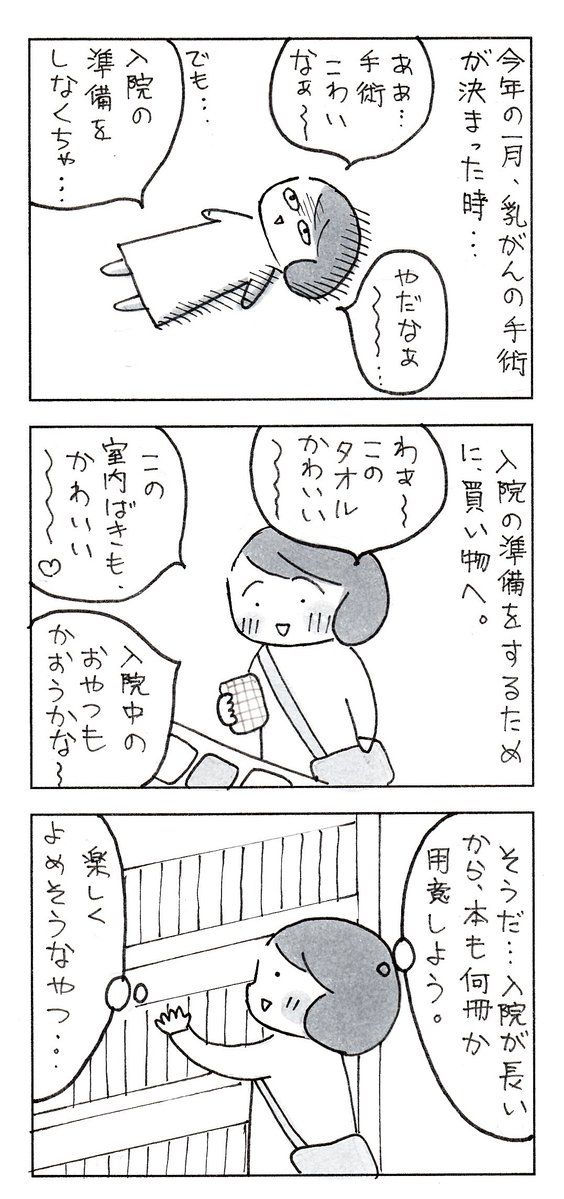 今年の一月、乳がんの手術
が決まった時…
ああ…
手術
こわい
なぁ〜
やだなぁ
〜〜〜…
でも…
入院の
準備を
しなくちゃ…
入院の準備をするため
に、買い物へ。
わぁ〜
この
タオル
かわいい
〜〜〜
この
室内ばきも、
かわいい
〜〜〜♡
入院中の
おやつも
かおうかな〜
そうだ…入院が長い
から、本も何冊か
用意しよう。
楽しく
よめそうなやつ…